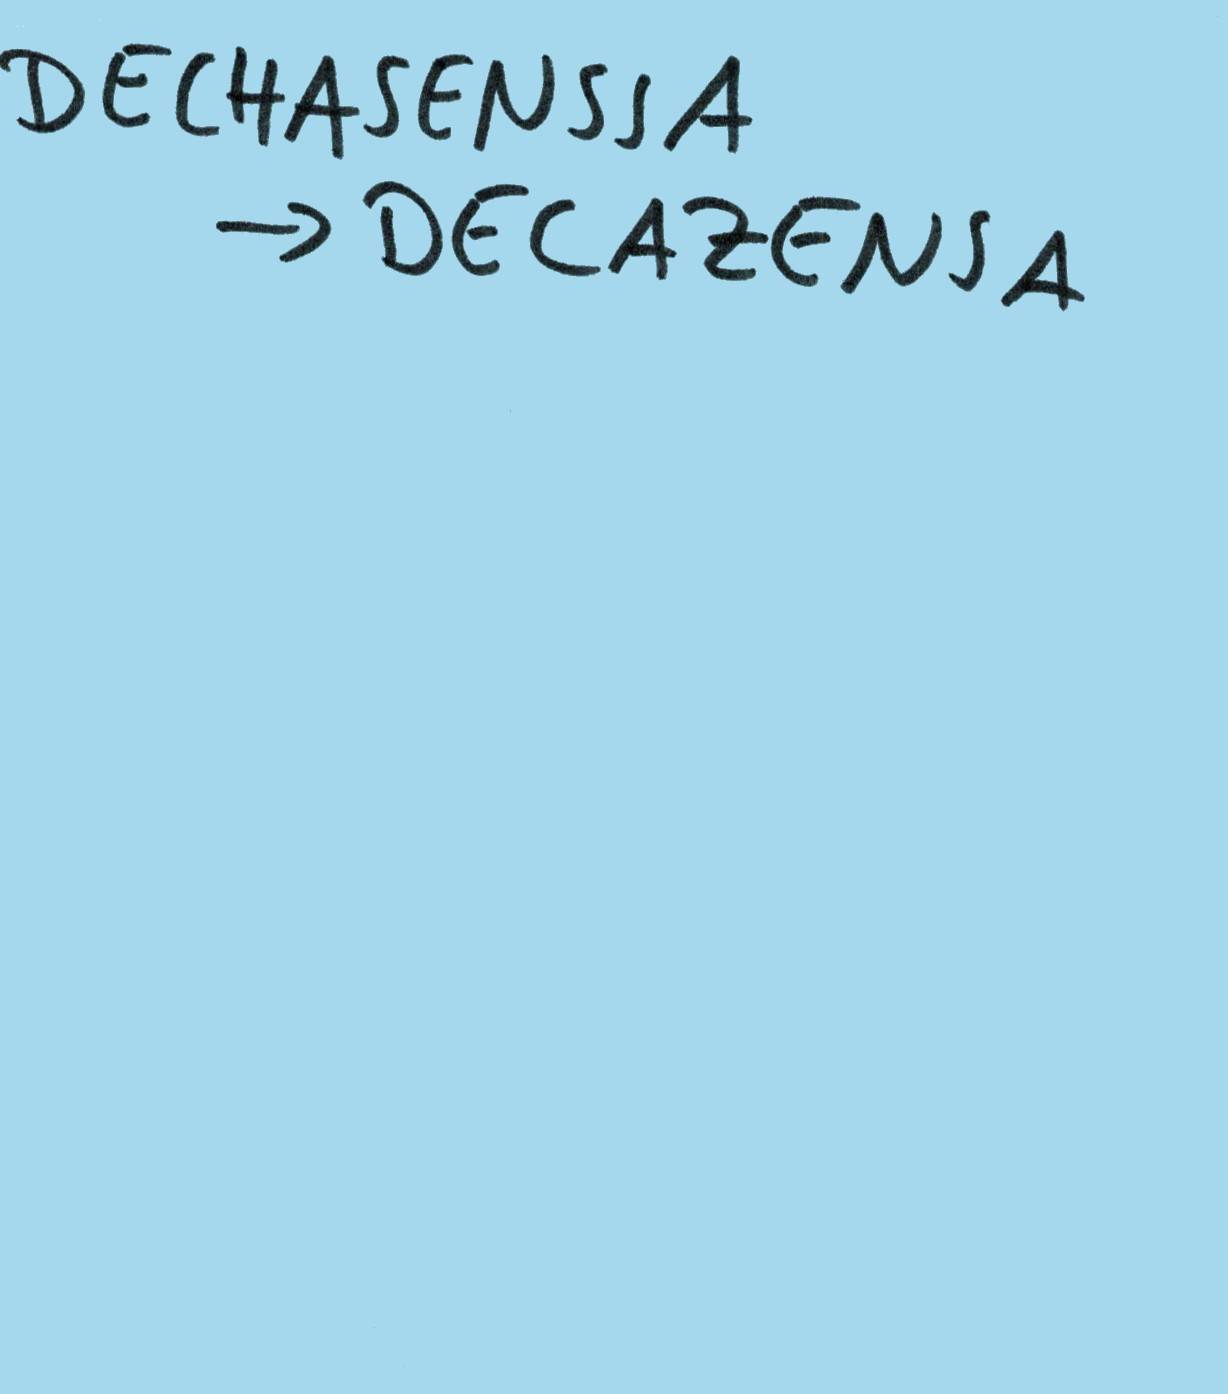 DECHASENSSA
→ DECAZENSA